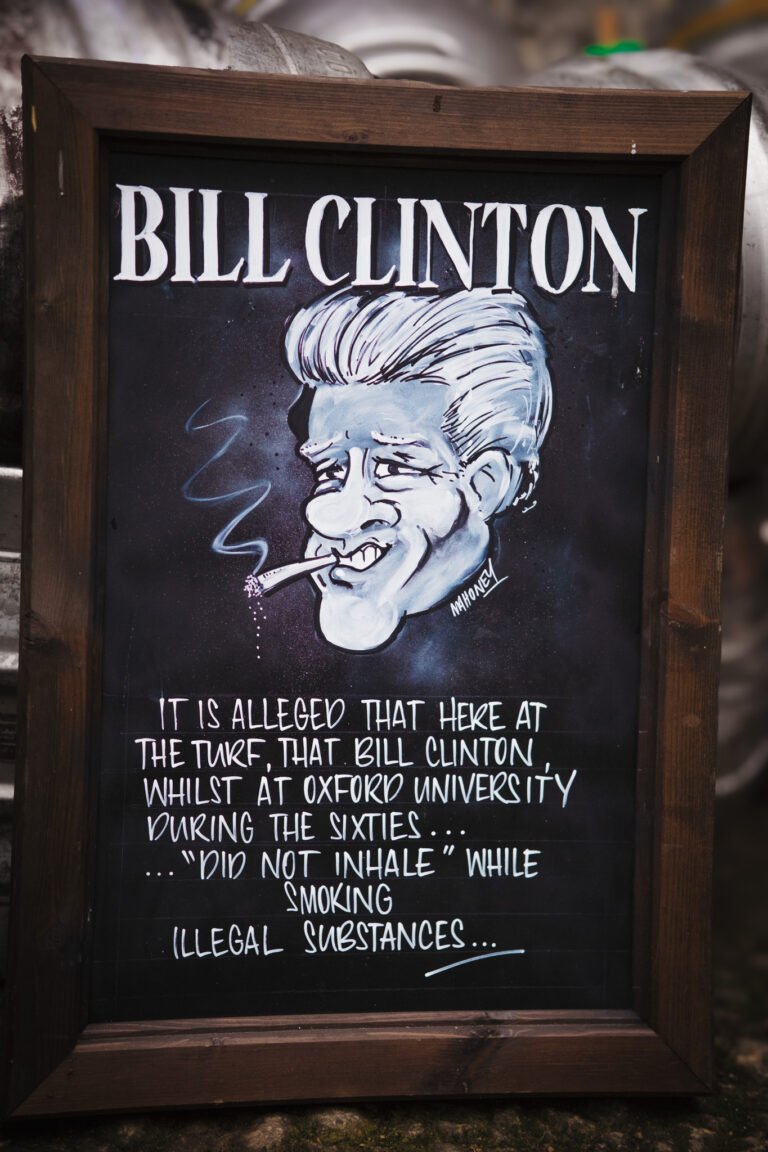 BILL CLINTON
MAHONEY
IT IS ALLEGED THAT HERE AT
THE TURF, THAT BILL CLINTON,
WHILST AT OXFORD UNIVERSITY
DURING THE SIXTIES...
..."DID NOT INHALE" WHILE
SMOKING
ILLEGAL SUBSTANCES...